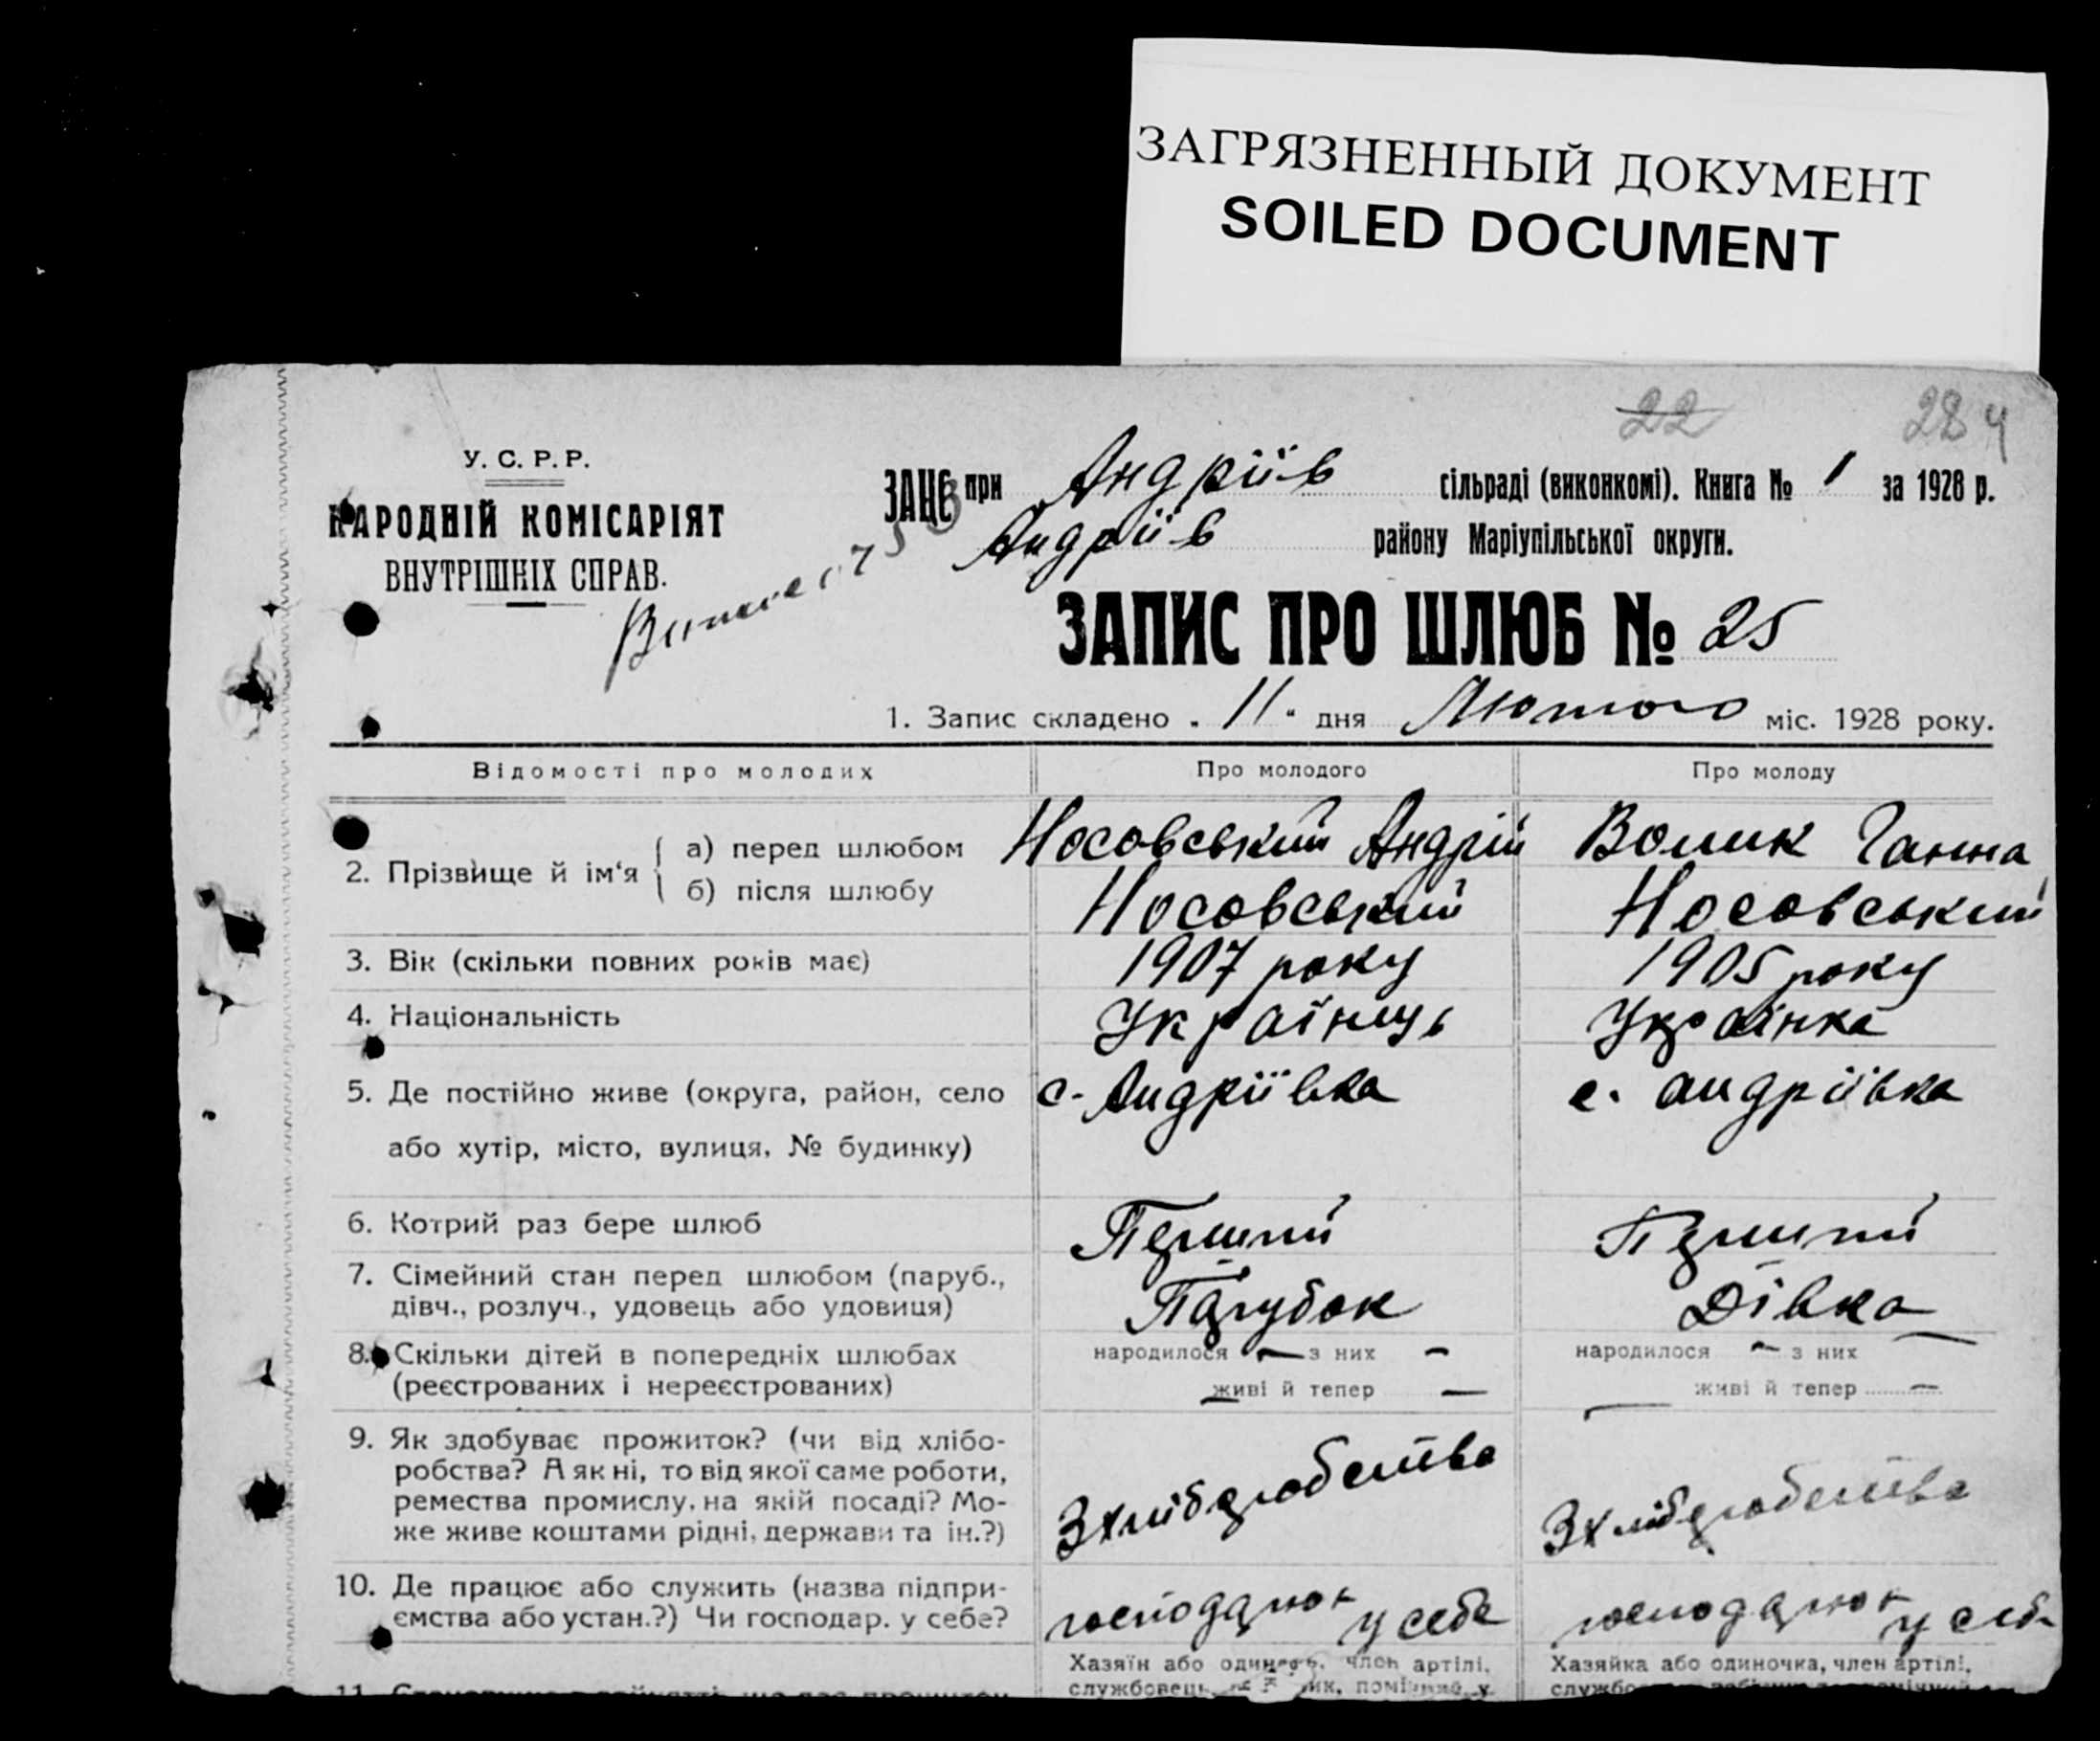 ЗАГРЯЗНЕННЫЙ ДОКУМЕНТ
SOILED DOCUMENT
22 284
У. С. Р. Р.
НАРОДНІЙ КОМІСАРІЯТ
ВНУТРІШНІХ СПРАВ.
ЗАЦС при Андріїв сільраді (виконкомі). Книга № 1 за 1928 р.
Андріїв району Маріупільської округи.
ЗАПИС ПРО ШЛЮБ № 25
1. Запис складено „ 11 " дня Лютого міс. 1928 року.
Відомості про молодих Про молодого Про молоду
2. Прізвище й ім'я
а) перед шлюбом Носовський Андрій Волик Ганна
б) після шлюбу Носовський Носовський
3. Вік (скільки повних років має) 1907 року 1905 року
4. Національність Українць Українка
5. Де постійно живе (округа, район, село с. Андріївка с. Андріївка
або хутір, місто, вулиця, № будинку)
6. Котрий раз бере шлюб Перший Перший
7. Сімейний стан перед шлюбом (паруб., Парубок Дівка
дівч., розлуч., удовець або удовиця)
8. Скільки дітей в попередніх шлюбах народилося — з них — народилося — з них —
(реєстрованих і нереєстрованих) живі й тепер — живі й тепер —
9. Як здобуває прожиток? (чи від хлібо-
робства? А як ні, то від якої саме роботи, З хліборобства З хліборобства
ремества промислу, на якій посаді? Мо-
же живе коштами рідні, держави та ін.?)
10. Де працює або служить (назва підпри-
ємства або устан.?) Чи господар. у себе? у себе
Хазяїн або одинець, член артілі, Хазяйка або одиночка, член артілі,
службовець